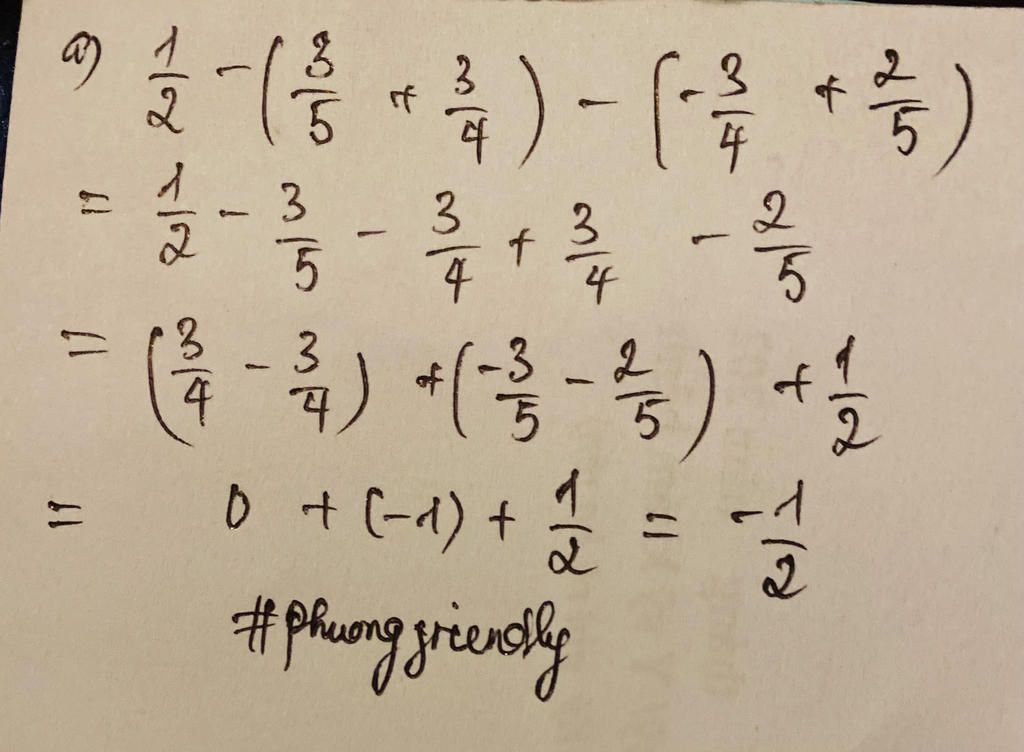 a) 1/2 - (3/5 + 3/4) - (-3/4 + 2/5)
= 1/2 - 3/5 - 3/4 + 3/4 - 2/5
= (3/4 - 3/4) + (-3/5 - 2/5) + 1/2
= 0 + (-1) + 1/2 = -1/2
#phuongfriendly